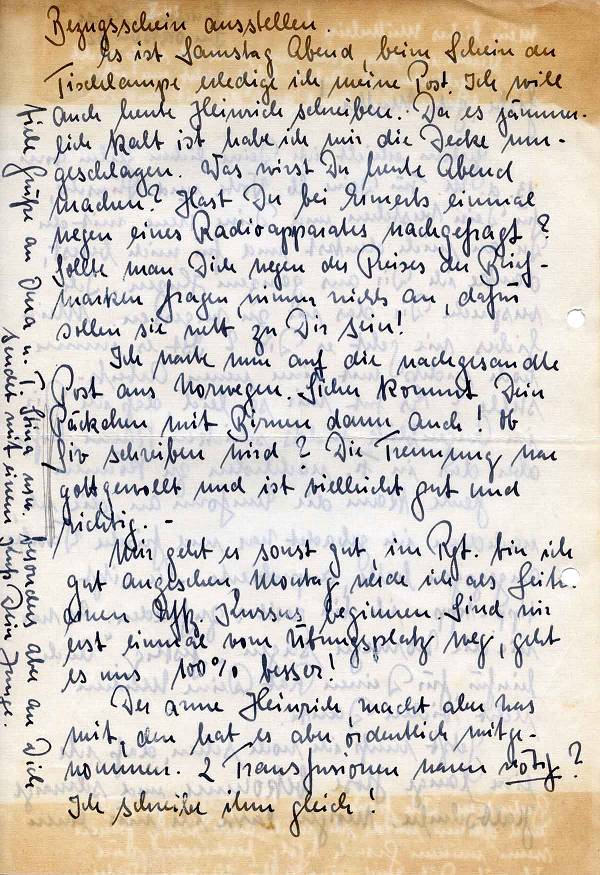 Bezugsschein ausstellen.
Es ist Samstag Abend, beim Schein der
Tischlampe erledige ich meine Post. Ich will
auch heute Heinrich schreiben. Da es jämmer-
lich kalt ist habe ich mir die Decke um-
geschlagen. Was wirst Du heute Abend
machen? Hast Du bei einmal
wegen eines Radioapparates nachgefragt?
Sollte man Dich wegen des Preises der Brief-
marken fragen, nimm nichts an, dafür
sollen sie nett zu Dir sein!
Ich warte nun auf die nachgesandte
Post aus Norwegen. Sicher kommt Dein
Päckchen mit Birnen dann auch! Ob
schreiben wird? Die Trennung war
gottgewollt und ist vielleicht gut und
richtig. -
Mir geht es sonst gut, im Rgt. bin ich
gut angesehen, Montag werde ich als Leiter
einen Uffz. Kursus beginnen. Sind wir
erst einmal vom Übungsplatz weg, geht
es uns 100% besser!
Der arme Heinrich, macht aber was
mit, den hat es aber ordentlich mitge-
nommen. 2 Transfusionen waren nötig?
Ich schreibe ihm gleich!
Viele Grüße an Oma u. T. Stina usw. besonders aber an Dich
sendet mit einem Kuß Dein Junge.